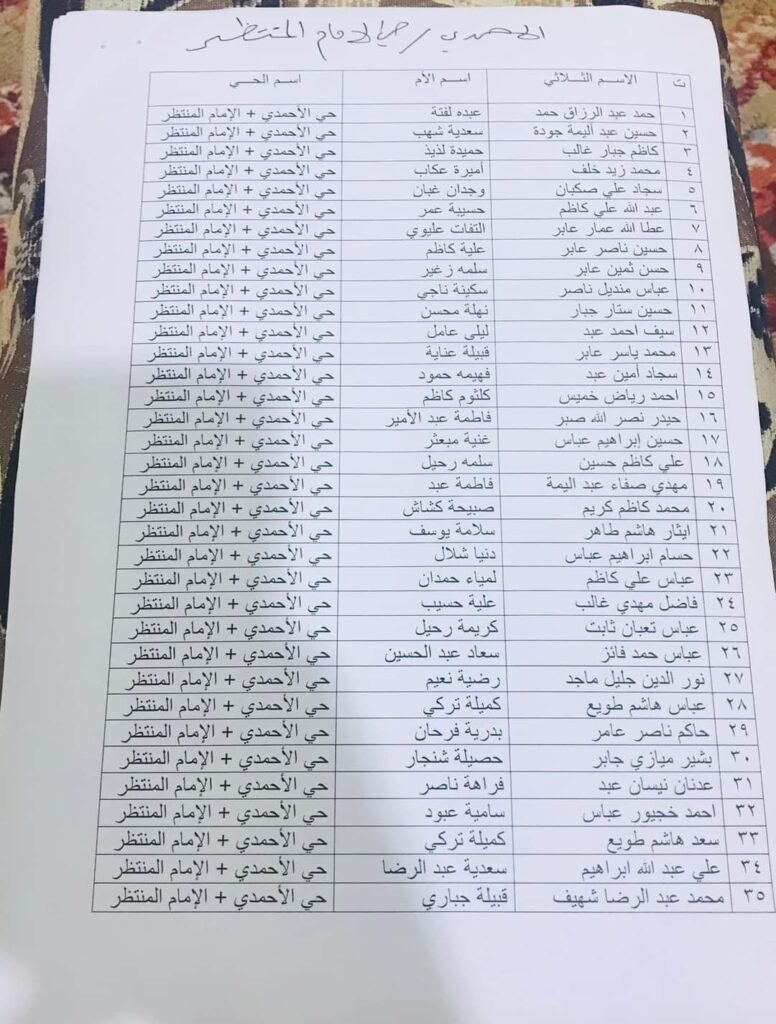 الاحمدي / حي الامام المنتظر
ت الاسم الثلاثي اسم الأم اسم الحي
١ حمد عبد الرزاق حمد عبده لفتة حي الأحمدي + الإمام المنتظر
٢ حسين عبد أليمة جودة سعدية شهب حي الأحمدي + الإمام المنتظر
٣ كاظم جبار غالب حميدة لذيذ حي الأحمدي + الإمام المنتظر
٤ محمد زيد خلف أميرة عكاب حي الأحمدي + الإمام المنتظر
٥ سجاد علي صكبان وجدان غبان حي الأحمدي + الإمام المنتظر
٦ عبد الله علي كاظم حسيبة عمر حي الأحمدي + الإمام المنتظر
٧ عطا الله عمار عابر التفات عليوي حي الأحمدي + الإمام المنتظر
٨ حسين ناصر عابر علية كاظم حي الأحمدي + الإمام المنتظر
٩ حسن ثمين عابر سلمه زغير حي الأحمدي + الإمام المنتظر
١٠ عباس منديل ناصر سكينة ناجي حي الأحمدي + الإمام المنتظر
١١ حسين ستار جبار نهلة محسن حي الأحمدي + الإمام المنتظر
١٢ سيف احمد عبد ليلى عامل حي الأحمدي + الإمام المنتظر
١٣ محمد ياسر عابر قبيلة عناية حي الأحمدي + الإمام المنتظر
١٤ سجاد أمين عبد فهيمه حمود حي الأحمدي + الإمام المنتظر
١٥ احمد رياض خميس كلثوم كاظم حي الأحمدي + الإمام المنتظر
١٦ حيدر نصر الله صبر فاطمة عبد الأمير حي الأحمدي + الإمام المنتظر
١٧ حسين إبراهيم عباس غنية مبعثر حي الأحمدي + الإمام المنتظر
١٨ علي كاظم حسين سلمه رحيل حي الأحمدي + الإمام المنتظر
١٩ مهدي صفاء عبد اليمة فاطمة عبد حي الأحمدي + الإمام المنتظر
٢٠ محمد كاظم كريم صبيحة كشاش حي الأحمدي + الإمام المنتظر
٢١ ايثار هاشم طاهر سلامة يوسف حي الأحمدي + الإمام المنتظر
٢٢ حسام ابراهيم عباس دنيا شلال حي الأحمدي + الإمام المنتظر
٢٣ عباس علي كاظم لمياء حمدان حي الأحمدي + الإمام المنتظر
٢٤ فاضل مهدي غالب علية حسيب حي الأحمدي + الإمام المنتظر
٢٥ عباس تعبان ثابت كريمة رحيل حي الأحمدي + الإمام المنتظر
٢٦ عباس حمد فائز سعاد عبد الحسين حي الأحمدي + الإمام المنتظر
٢٧ نور الدين جليل ماجد رضية نعيم حي الأحمدي + الإمام المنتظر
٢٨ عباس هاشم طويع كميلة تركي حي الأحمدي + الإمام المنتظر
٢٩ حاكم ناصر عامر بدرية فرحان حي الأحمدي + الإمام المنتظر
٣٠ بشير ميازي جابر حصيلة شنجار حي الأحمدي + الإمام المنتظر
٣١ عدنان نيسان عبد فراهة ناصر حي الأحمدي + الإمام المنتظر
٣٢ احمد خجيور عباس سامية عبود حي الأحمدي + الإمام المنتظر
٣٣ سعد هاشم طويع كميلة تركي حي الأحمدي + الإمام المنتظر
٣٤ علي عبد الله ابراهيم سعدية عبد الرضا حي الأحمدي + الإمام المنتظر
٣٥ محمد عبد الرضا شهيف قبيلة جباري حي الأحمدي + الإمام المنتظر